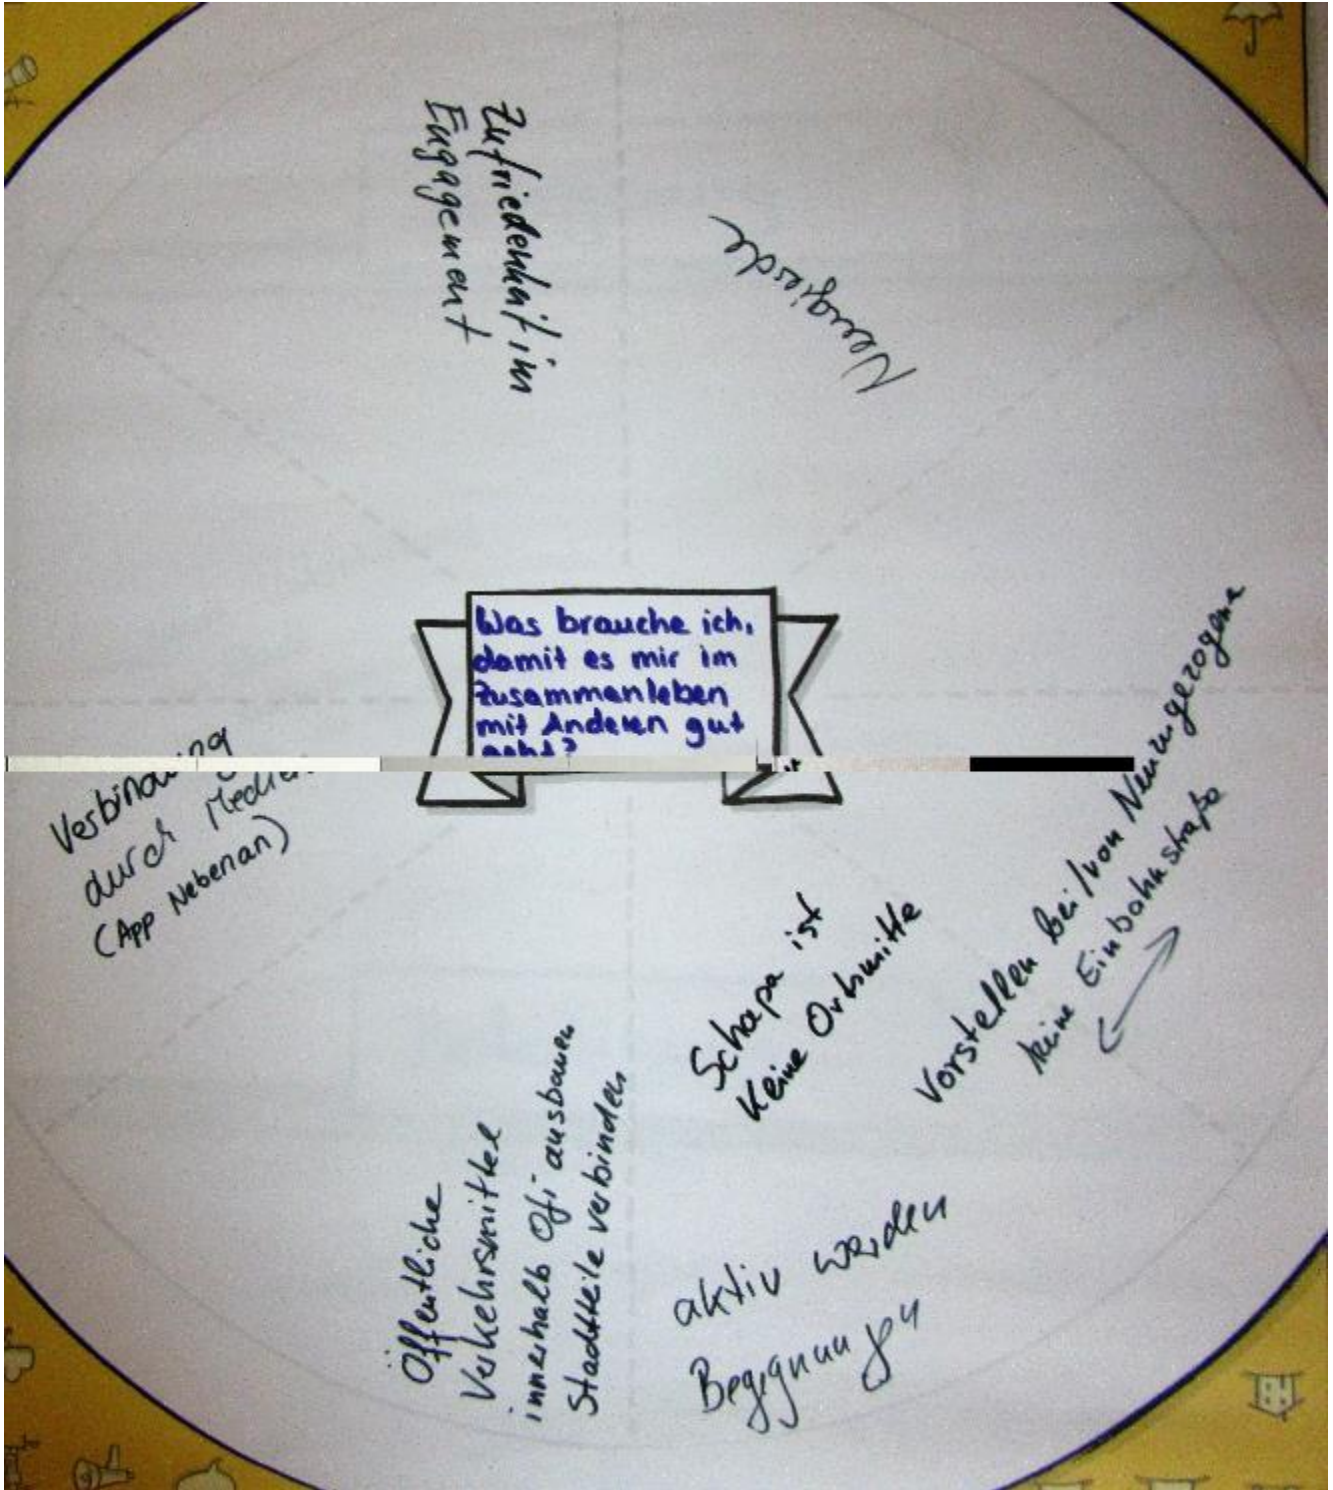 Zufriedenheit im
Engagement
Neugierde
Was brauche ich,
damit es mir im
Zusammenleben
mit Anderen gut
geht?
Verbindung
durch Medien
(App Nebenan)
Vorstellen bei/von Neuzugezogene
keine Einbahnstraße
Schapa ist
Keine Ortsmitte
Öffentliche
Verkehrsmittel
innerhalb Ofi ausbauen
Stadtteile verbinden
aktiv werden
Begegnung